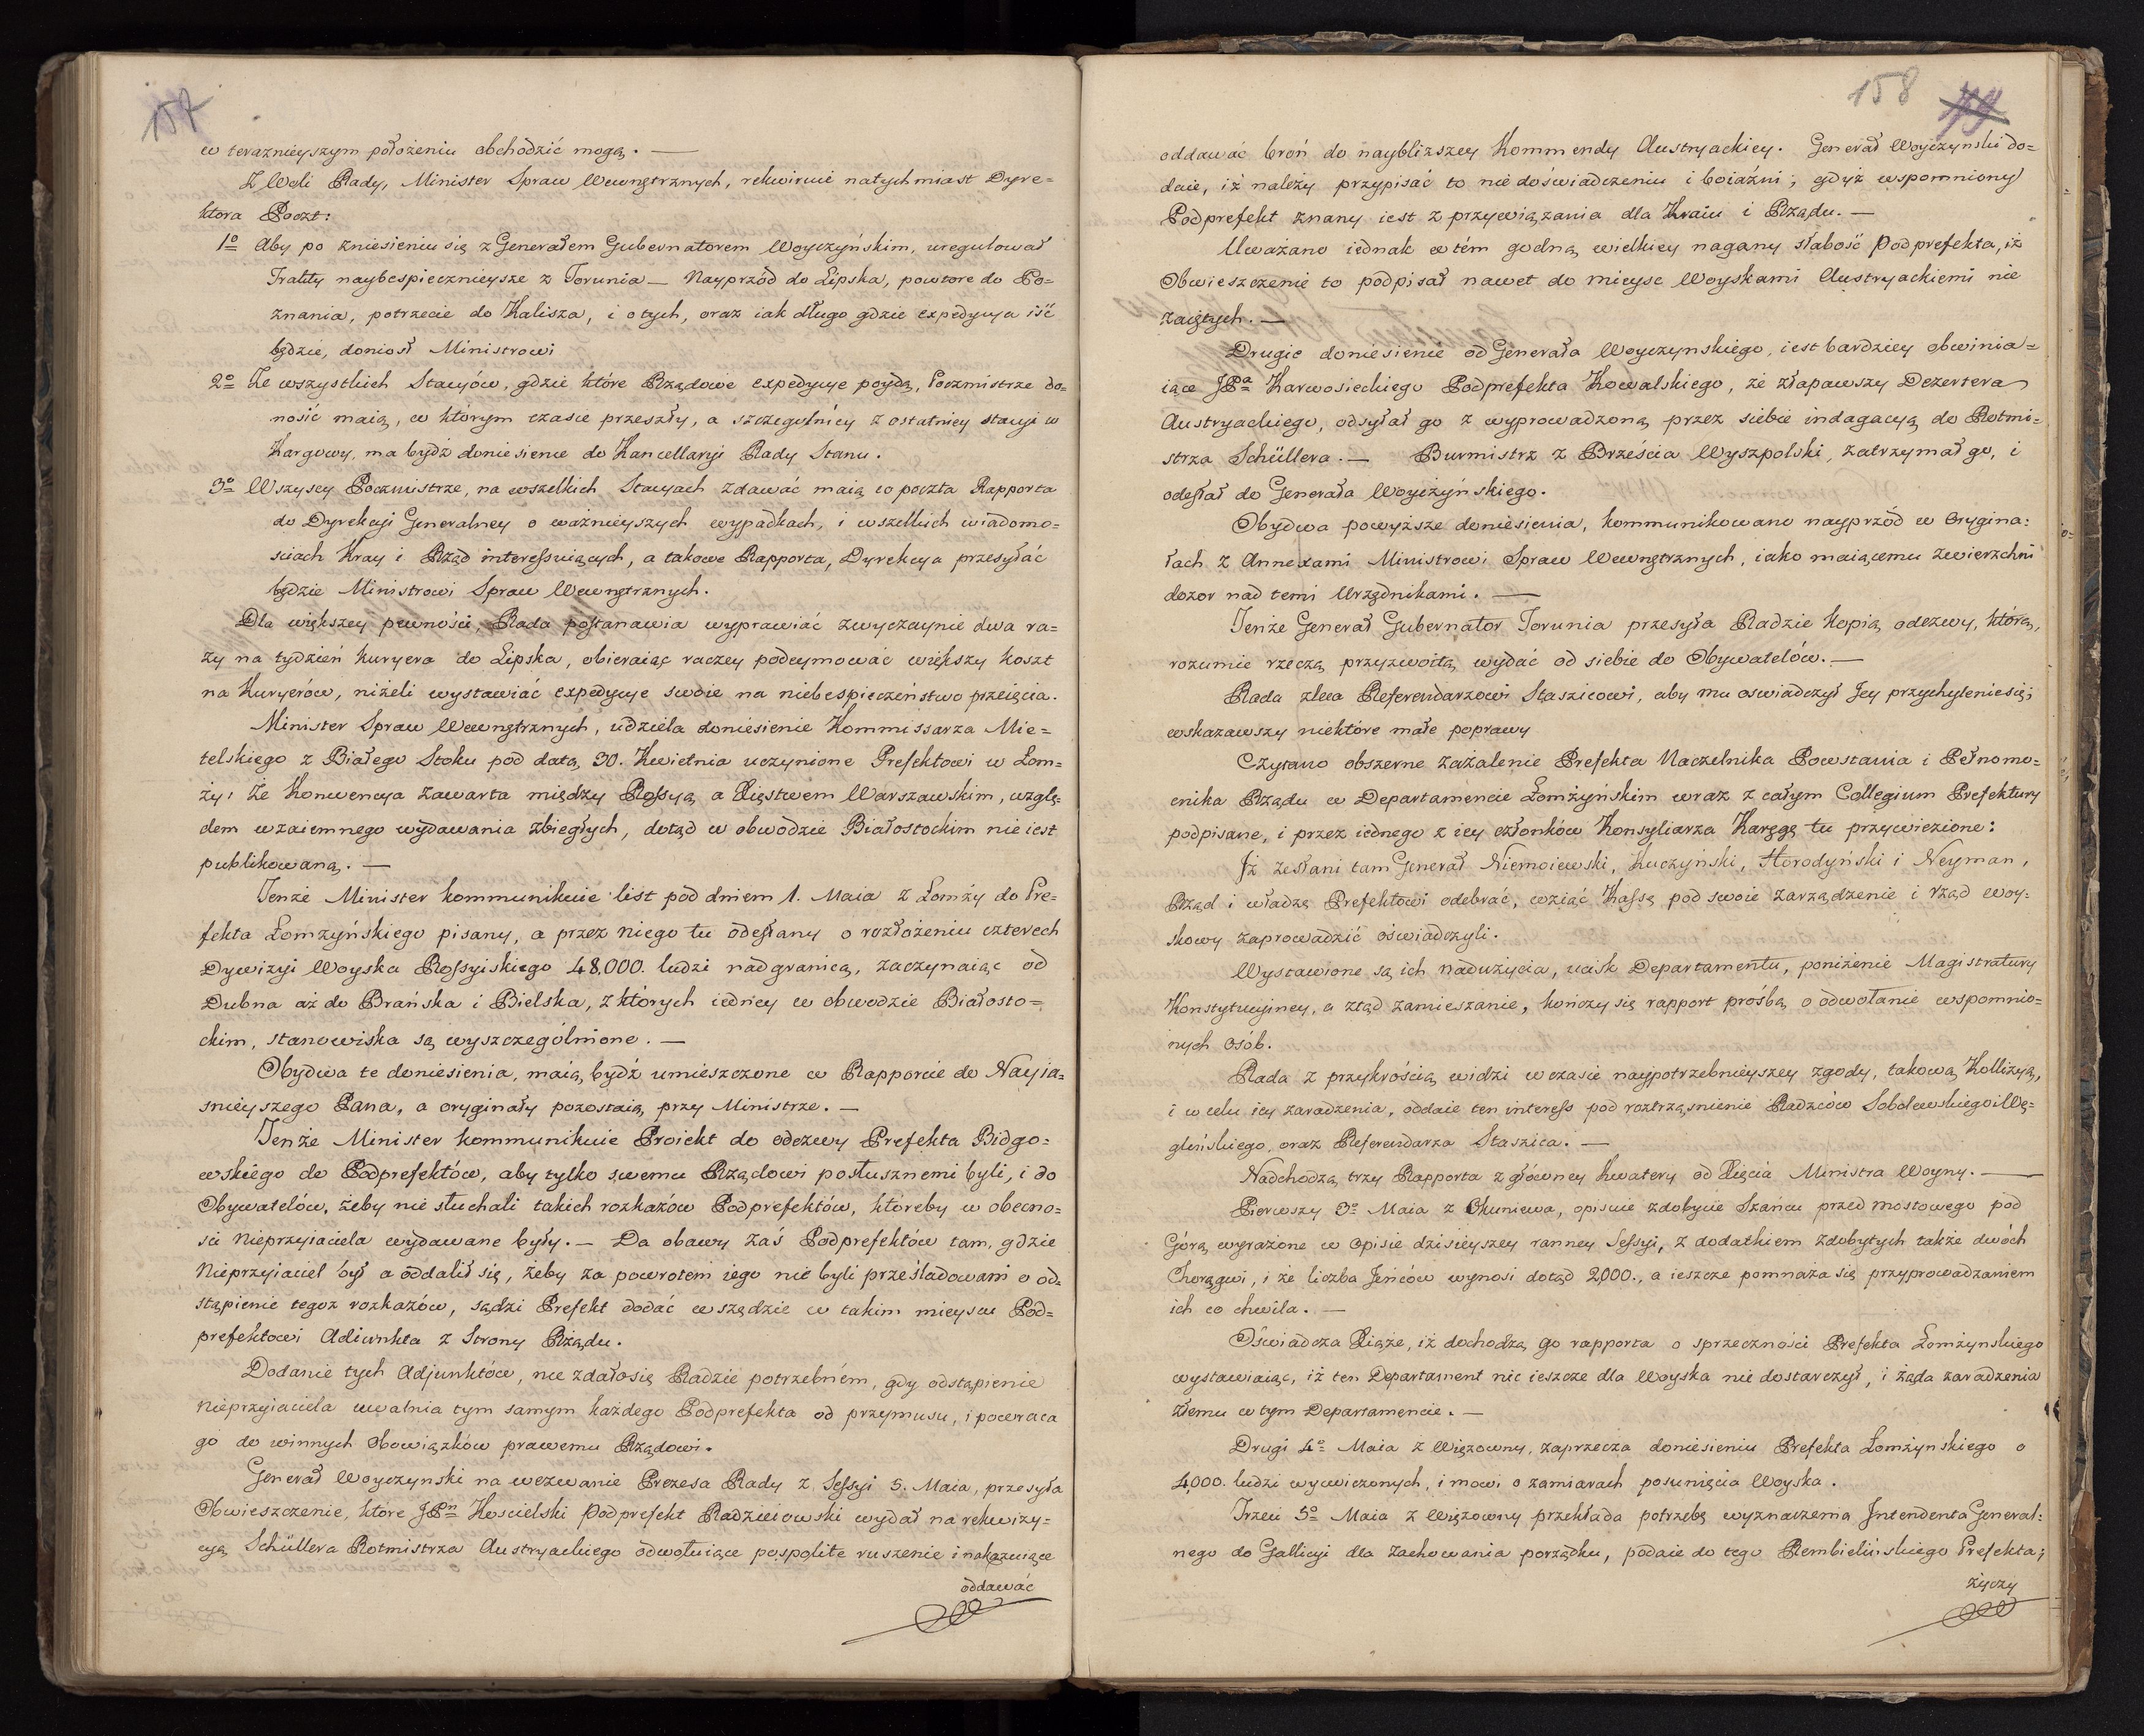 157
w terazniеyszym położeniu obchodzić mogą. —
Z Woli Rady, Minister Spraw Wewnętrznych, rekwiruie natychmiast Dyre=
ktora Poczt:
1o Aby po zniesieniu się z Generałem Gubernatorem Woyczyńskim, uregulował
Trakty naybespiecznieysze z Torunia — Nayprzód do Lipska, powtore do Po=
znania, potrzecie do Kalisza, i o tych, oraz iak długo gdzie expedycya iść
będzie, doniosł Ministrowi
2o Ze wszystkich Stacyów, gdzie które Rządowe expedycye poydą, Poczmistrze do=
nosić maią, w którym czasie przeszły, a szczegulniey z ostatniey stacyi w
Kargowy, ma bydź doniesienie do Kancellaryi Rady Stanu.
3o Wszyscy Poczmistrze, na wszelkich Stacyach zdawać maią co poczta Rapporta
do Dyrekcyi Generalney o ważnieyszych wypadkach, i wszelkich wiadomo=
sciach Kray i Rząd interessuiących, a takowe Rapporta, Dyrekcya przesyłać
będzie Ministrowi Spraw Wewnętrznych.
Dla większey pewności, Rada postanawia wyprawiać zwyczaynie dwa ra=
zy na tydzień kuryera do Lipska, obieraiąc raczey podeymować większy koszt
na Kuryerów, niżeli wystawiać expedycye swoie na niebespieczeństwo przeięcia.
Minister Spraw Wewnętrznych, udziela doniesienie Kommissarza Mie=
telskiego z Białego Stoku pod datą 30. Kwietnia uczynione Prefektowi w Łom=
ży: że Konwencya zawarta między Rossyą a Xięstwem Warszawskim, wzglę=
dem wzaiemnego wydawania zbiegłych, dotąd w obwodzie Białostockim nie iest
publikowaną. —
Tenże Minister kommunikuie list pod dniem 1. Maia z Łomży do Pre=
fekta Łomżyńskiego pisany, a przez niego tu odesłany o rozłożeniu czterech
Dywizyi Woyska Rossyiskiego 48,000. ludzi nad granicą, zaczynaiąc od
Dubna aż do Brańska i Bielska, z których iedney w obwodzie Białosto=
ckim, stanowiska są wyszczególnione. —
Obydwa te doniesienia, maią bydź umieszczone w Rapporcie do Nayia=
snieyszego Pana, a oryginały pozostaią przy Ministrze. —
Tenże Minister kommunikuie Proiekt do odezwy Prefekta Bidgo=
wskiego do Podprefektów, aby tylko swemu Rządowi posłusznemi byli, i do
Obywatelów, żeby nie słuchali takich rozkazów Podprefektów, któreby w obecno=
sci Nieprzyiaciela wydawane były. — Da obawy zaś Podprefektów tam, gdzie
Nieprzyiaciel był a oddalił się, żeby za powrotem iego nie byli prześladowani o od=
stąpienie tegoż rozkazów, sądzi Prefekt dodać wszędzie w takim mieyscu Pod=
prefektowi Adiunkta z Strony Rządu.
Dodanie tych Adjunktów, nie zdało się Radzie potrzebném, gdy odstąpienie
Nieprzyiaciela uwalnia tym samym każdego Podprefekta od przymusu, i powraca
go do winnych Obowiązków prawemu Rządowi.
Generał Woyczynski na wezwanie Prezesa Rady z Sessyi 5. Maia, przesyła
Obwieszczenie, które JPn Koscielski Podprefekt Radzieiowski wydał na rekwizy=
cyą Schüllera Rotmistrza Austryackiego odwołuiące pospolite ruszenie i nakazuiące
oddawać
158
oddawać broń do naybliższey Kommendy Austryackiey. Generał Woyczynski do=
daie, iż należy przypisać to niedoświadczeniu i boiaźni; gdyż wspomniony
Podprefekt znany iest z przywiązania dla Kraiu i Rządu. —
Uważano iednak w tém godną wielkiey nagany słabość Podprefekta, iż
Obwieszczenie to podpisał nawet do mieysc Woyskami Austryackiemi nie
zaiętych. —
Drugie doniesienie od Generała Woyczynskiego, iest bardziey obwinia=
iące JPa Karwosieckiego Podprefekta Kowalskiego, że złapawszy Dezertera
Austryackiego, odsyłał go z wyprowadzoną przez siebie indagacyą do Rotmi=
strza Schüllera. — Burmistrz z Brześcia Wyszpolski, zatrzymał go, i
odesłał do Generała Woyczyńskiego.
Obydwa powyższe doniesienia, kommunikowano nayprzód w Orygina=
łach z Annexami Ministrowi Spraw Wewnętrznych, iako maiącemu zwierzchni
dozor nad temi Urzędnikami. —
Tenże Generał Gubernator Torunia przesyła Radzie kopią odezwy, którą,
rozumie rzeczą przyzwoitą wydać od siebie do Obywatelów. —
Rada zleca Referendarzowi Staszicowi, aby mu oswiadczył Jey przychylenie się;
wskazawszy niektóre małe poprawy
Czytano obszerne zażalenie Prefekta Naczelnika Powstania i Pełnomo=
cnika Rządu w Departamencie Łomżyńskim wraz z całym Collegium Prefektury
podpisane, i przez iednego z iey członków Konsyliarza Karęgę tu przywiezione:
Iż zesłani tam Generał Niemoiewski, Kuczyński, Horodyński i Neyman,
Rząd i władzę Prefektowi odebrać, wziąć Kassę pod swoie zarządzenie i rząd woy=
skowy zaprowadzić oświadczyli.
Wystawione są ich nadużycia, ucisk Departamentu, poniżenie Magistratury
Konstytucyiney, a ztąd zamieszanie, kończy się rapport prośbą o odwołanie wspomnio=
nych osób.
Rada z przykrością widzi w czasie naypotrzebnieyszey zgody, takową Kollizyą,
i w celu iey zaradzenia, oddaie ten interess pod roztrząsnienie Radzców Sobolewskiego i Wę=
gleńskiego, oraz Referendarza Staszica. —
Nadchodzą trzy Rapporta z główney kwatery od Xięcia Ministra Woyny. —
Pierwszy 3o Maia z Okuniewa, opisuie zdobycie Szańcu przed mostowego pod
Górą wyrażone w opisie dzisieyszey ranney Sessyi, z dodatkiem zdobytych także dwóch
Chorągwi, i że liczba Jeńców wynosi dotąd 2,000., a ieszcze pomnaża się przyprowadzaniem
ich co chwila. —
Oświadcza Xiąże, iż dochodzą go rapporta o sprzeczności Prefekta Łomżynskiego
wystawiaiąc, iż ten Departament nic ieszcze dla Woyska nie dostarczył, i żąda zaradzenia
złemu w tym Departamencie. —
Drugi 4o Maia z Wiązowny, zaprzecza doniesieniu Prefekta Łomżynskiego o
4,000. ludzi wycwiczonych, i mowi o zamiarach posunięcia Woyska.
Trzeci 5o Maia z Wiązowny przekłada potrzebę wyznaczenia Intendenta General=
nego do Gallicyi dla zachowania porządku, podaie do tego Rembielińskiego Prefekta;
życzy